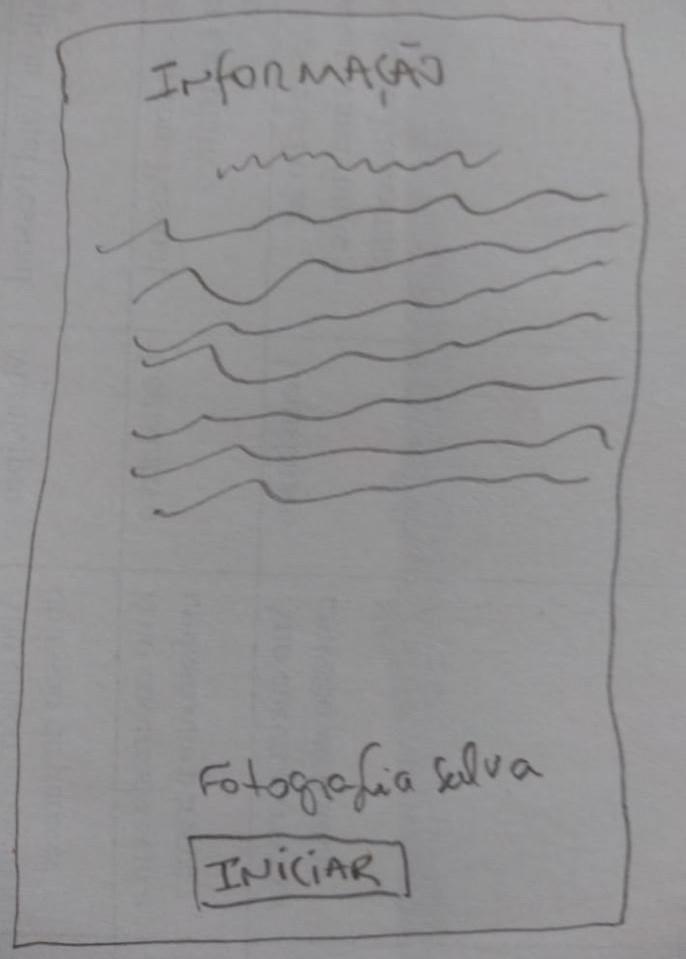 INfORMAÇÃO
Fotografia salva
INICIAR